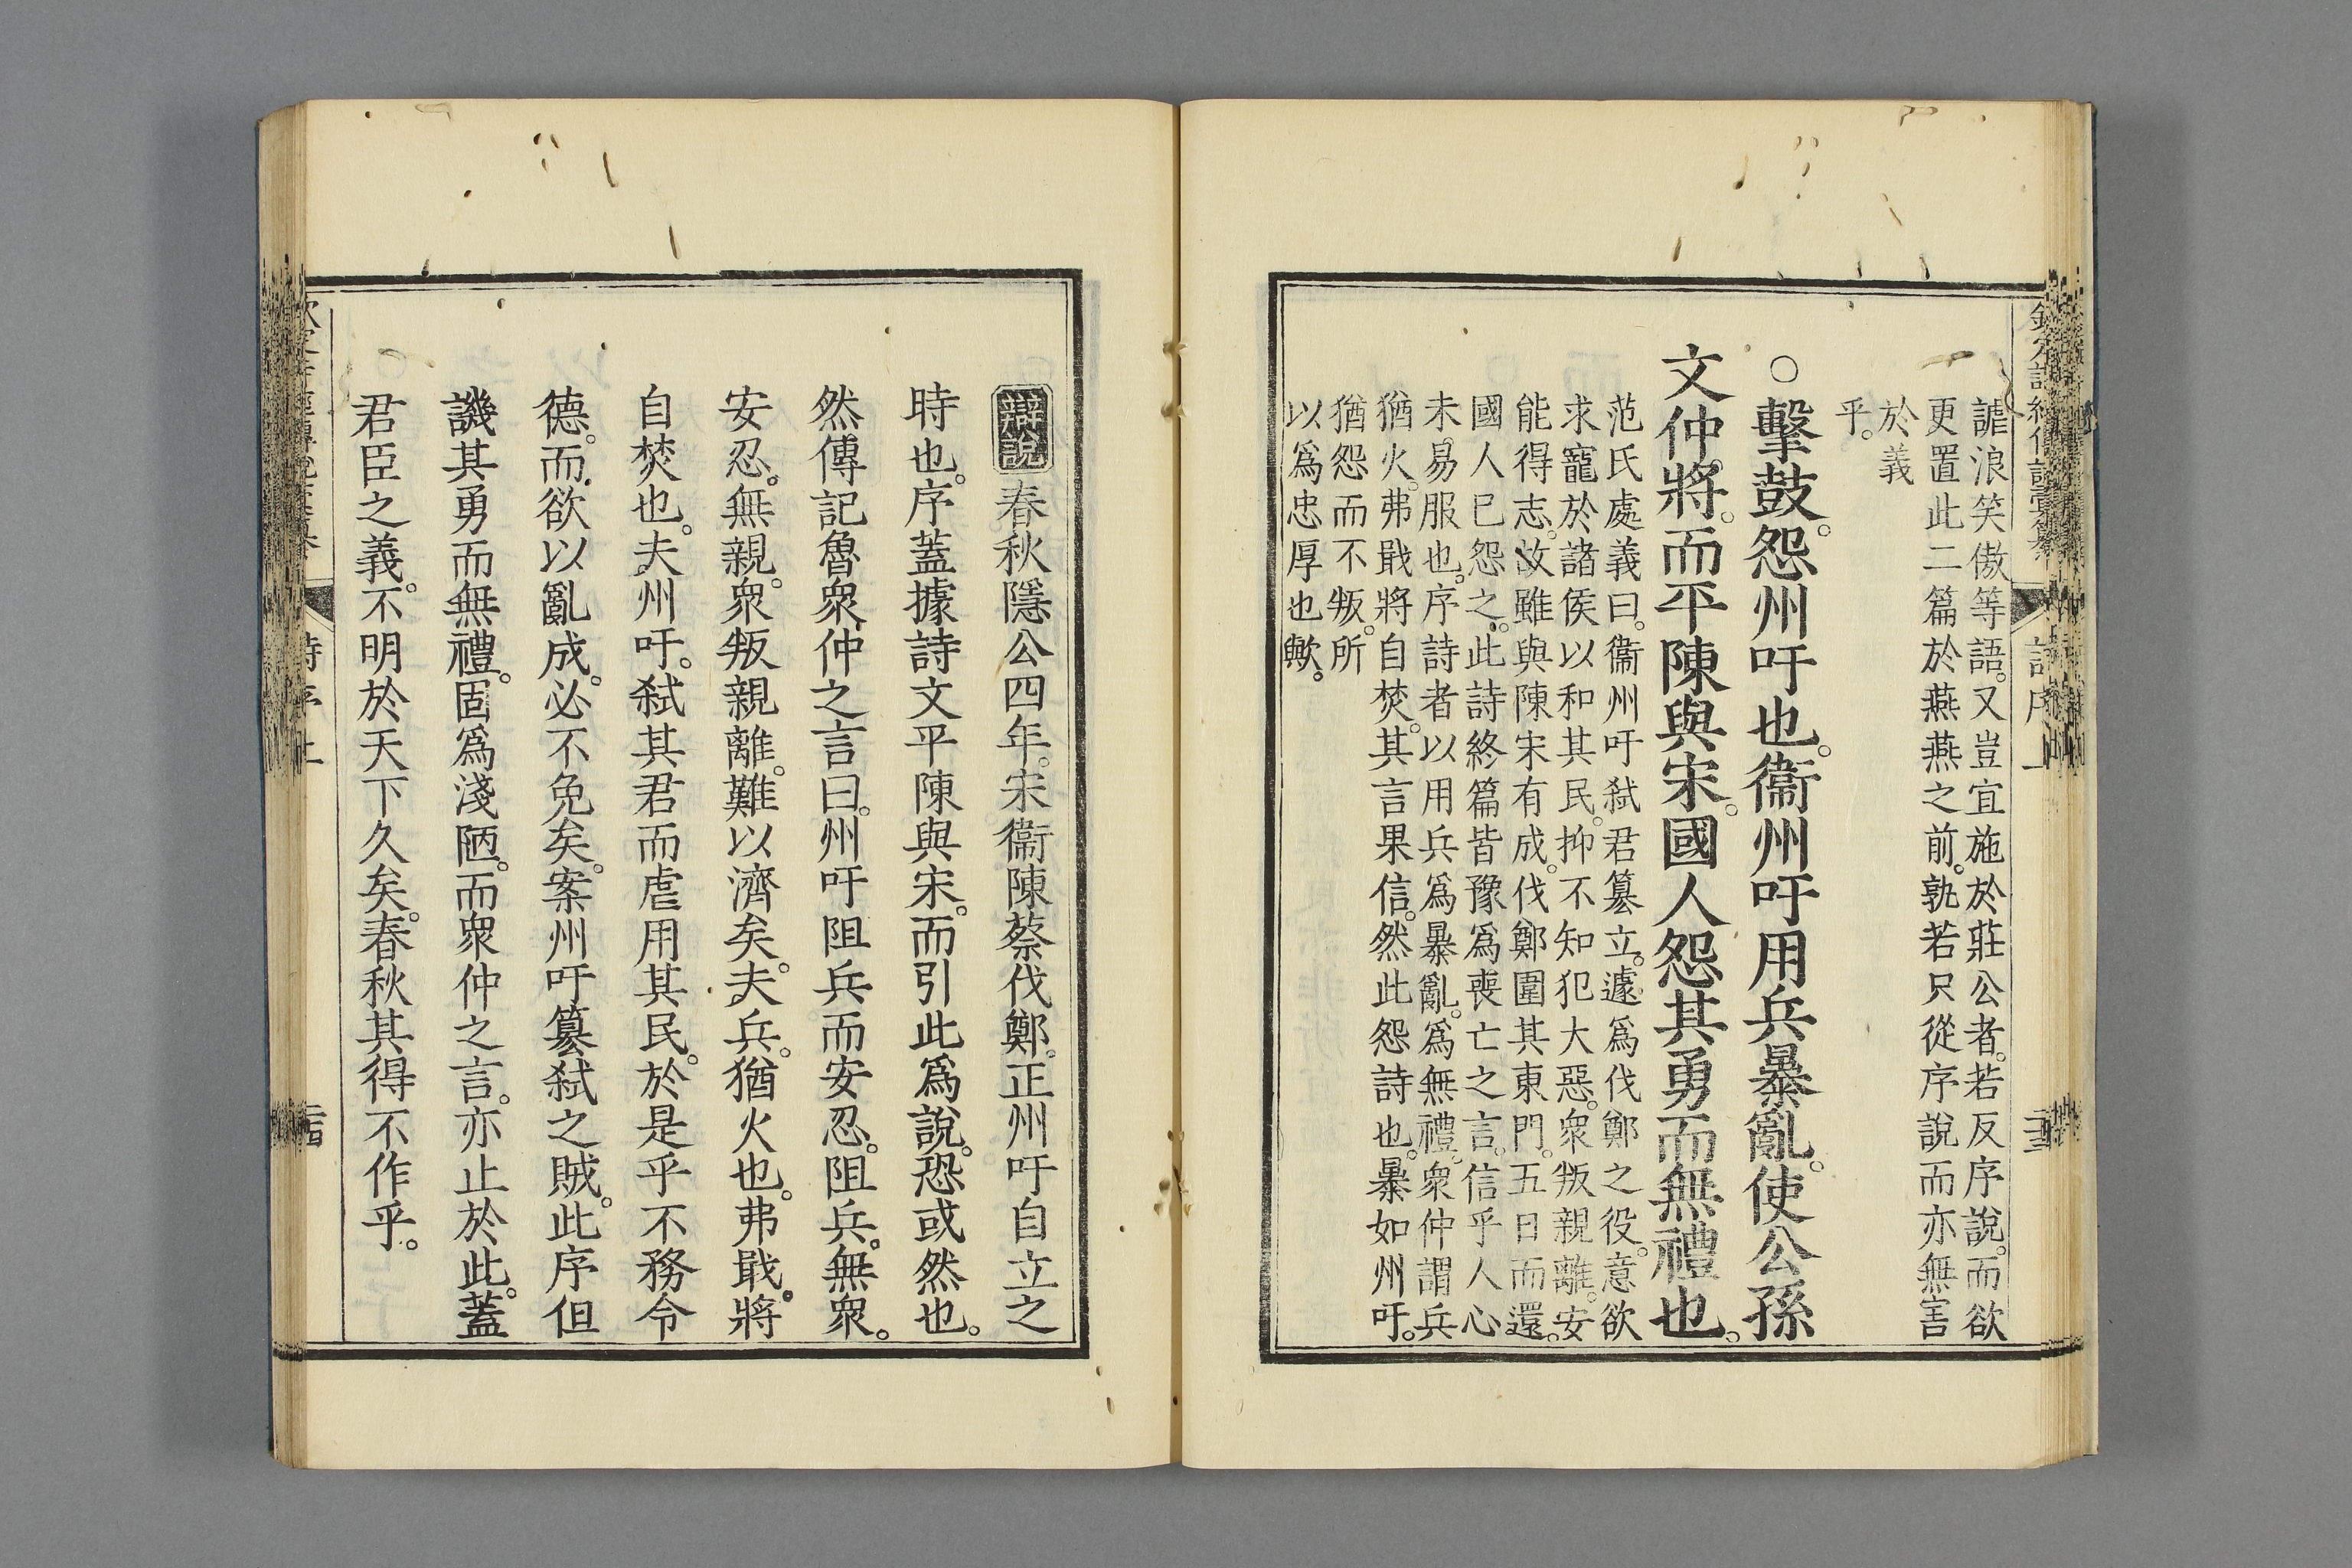 謔浪笑傲等語。又豈宜施於莊公者。若反序說。而欲
更置此二篇於燕燕之前。孰若只從序說而亦無害
於義
乎。
○擊鼓。怨州吁也。衞州吁用兵暴亂。使公孫
文仲將。而平陳與宋。國人怨其勇而無禮也。
范氏處義曰。衞州吁弑君簒立。遽爲伐鄭之役。意欲
求寵於諸侯以和其民。抑不知犯大惡。衆叛親離。安
能得志。故雖與陳宋有成。伐鄭圍其東門。五日而還。
國人已怨之。此詩終篇皆豫爲喪亡之言。信乎人心
未易服也。序詩者以用兵爲暴亂。爲無禮。衆仲謂兵
猶火。弗戢將自焚。其言果信。然此怨詩也。暴如州吁。
猶怨而不叛。所
以爲忠厚也歟。
欽定詩經傳說彙纂
詩序上
辯說春秋隱公四年。宋衞陳蔡伐鄭。正州吁自立之
時也。序蓋據詩文平陳與宋。而引此爲說。恐或然也。
然傳記魯衆仲之言曰。州吁阻兵而安忍。阻兵。無衆。
安忍。無親。衆叛親離。難以濟矣。夫兵。猶火也。弗戢。將
自焚也。夫州吁。弑其君而虐用其民。於是乎不務令
德。而欲以亂成。必不免矣。案州吁簒弑之賊。此序但
譏其勇而無禮。固爲淺陋。而衆仲之言。亦止於此。蓋
君臣之義。不明於天下久矣。春秋其得不作乎。
詩序上